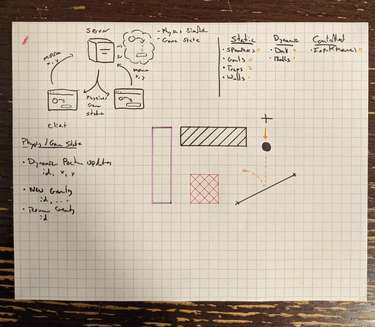 Server
- Physics Simulation
- Game State
mouse
x, y
mouse
x, y
Physics/
Game
State
client
Static
- Spawners
- Goals
- Traps
- Walls
Dynamic
- Dot
- Balls
Controlled
Physics/Game State
• Dynamic Position Updates
id, x, y
• New Entity
id, ...
• Remove Entity
id